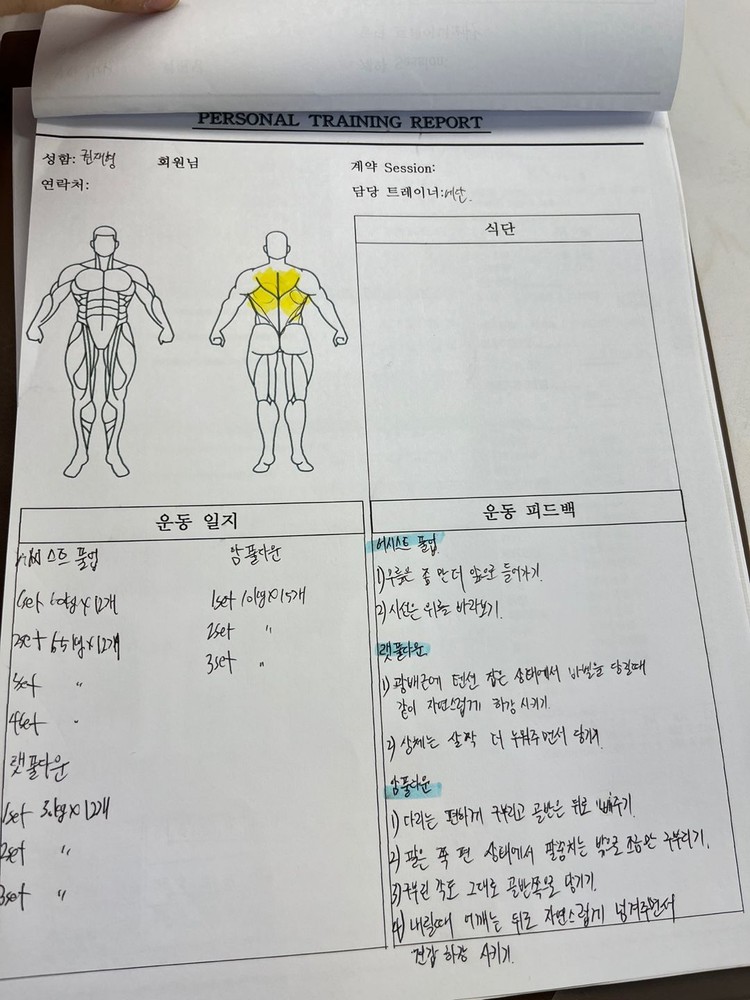 PERSONAL TRAINING REPORT
성함: 회원님
계약 Session:
연락처:
담당 트레이너:
식단
운동 일지
어시스트 풀업
암풀다운
1set 60kg×12개
1set 10kg×15개
2set 65kg×12개
2set 〃
3set 〃
3set 〃
4set 〃
랫풀다운
1set 30kg×12개
2set 〃
3set 〃
운동 피드백
어시스트 풀업
1) 무릎은 좀 만 더 앞으로 들어가기.
2) 시선은 위를 바라보기.
랫풀다운
1) 광배근에 텐션 잡은 상태에서 바벨을 당길때
같이 자연스럽게 하강 시키기.
2) 상체는 살짝 더 누워주면서 당기기.
암풀다운
1) 다리는 편하게 구부리고 골반은 뒤로 빼주기.
2) 팔은 쭉 편 상태에서 팔꿈치는 밖으로 조금만 구부리기.
3) 구부린 각도 그대로 골반쪽으로 당기기.
4) 내릴때 어깨는 뒤로 자연스럽게 넘겨주면서
견갑 하강 시키기.